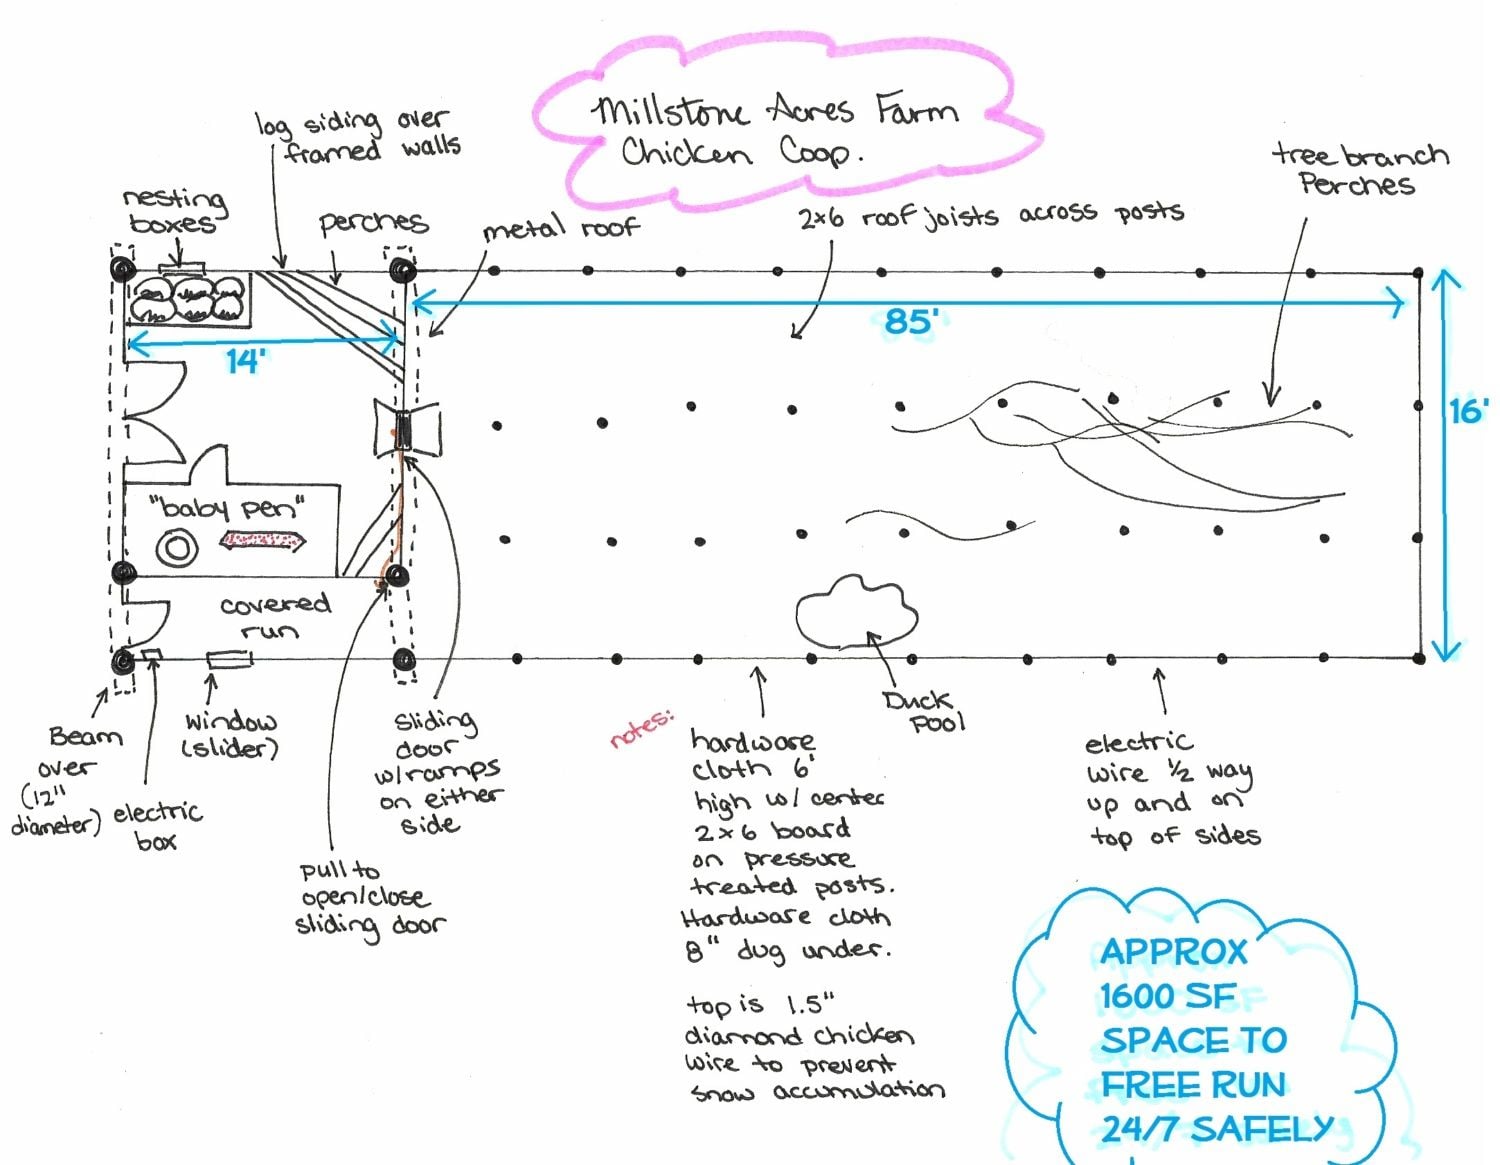 Millstone Acres Farm
Chicken Coop.
log siding over
framed walls
nesting
boxes
perches
metal roof
2x6 roof joists across posts
tree branch
Perches
85'
14'
16'
"baby pen"
covered
run
Beam
over
(12"
diameter)
electric
box
window
(slider)
sliding
door
w/ramps
on either
side
pull to
open/close
sliding door
notes:
Duck
Pool
hardware
cloth 6'
high w/ center
2x6 board
on pressure
treated posts.
Hardware cloth
8" dug under.
top is 1.5"
diamond chicken
wire to prevent
snow accumulation
electric
wire 1/2 way
up and on
top of sides
APPROX
1600 SF
SPACE TO
FREE RUN
24/7 SAFELY